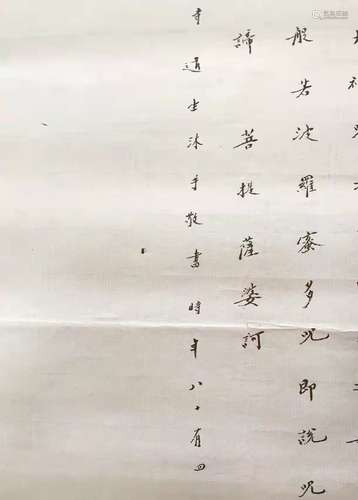 般若波羅蜜多呪即說呪
諦菩提薩婆訶
寺道士沐手敬書時年八十有四